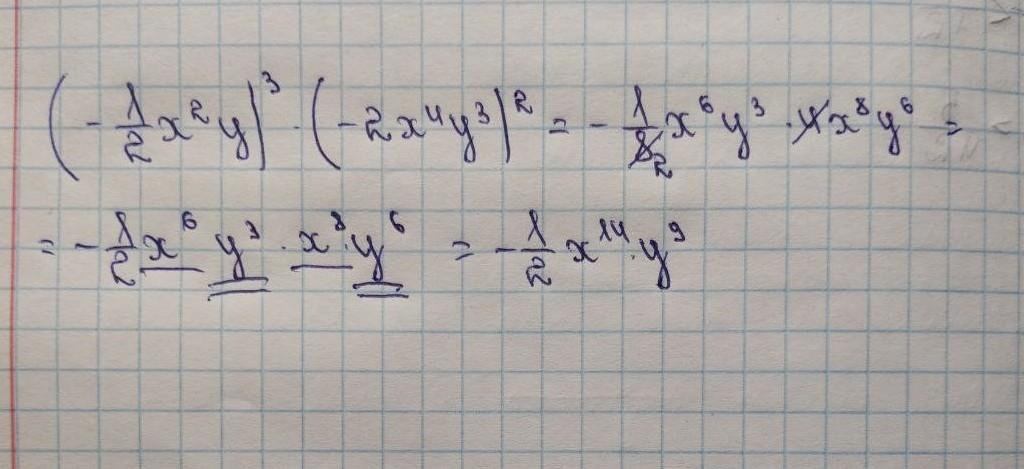 (-1/2 x²y)³ · (-2x⁴y³)² = -1/8₂ x⁶y³ · 4x⁸y⁶ =
= -1/2 x⁶ y³ · x⁸ · y⁶ = -1/2 x¹⁴ · y⁹